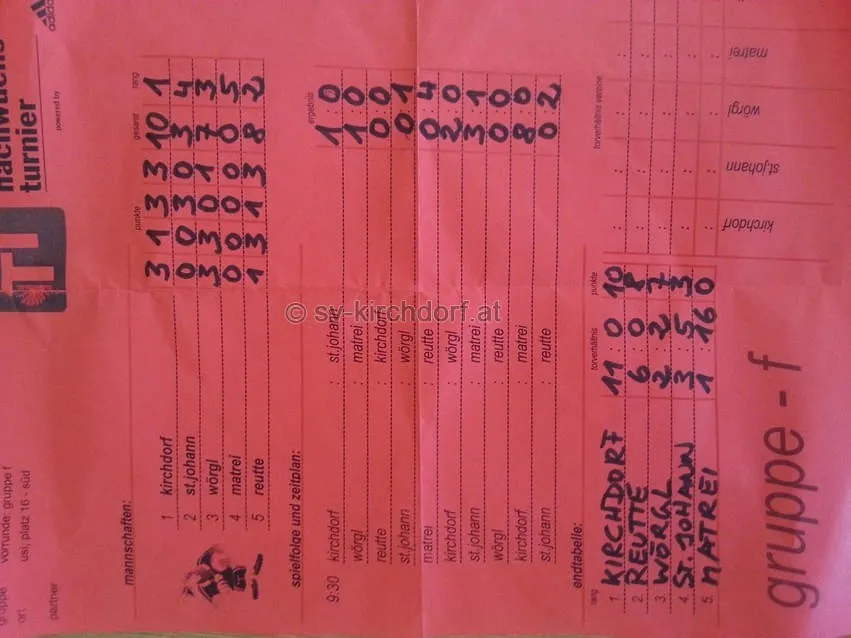 nachwuchs
turnier
powered by adidas
gruppe vorrunde: gruppe f
ort usi, platz 16 - süd
partner
mannschaften: punkte gesamt rang
1 kirchdorf 3 1 3 3 10 1
2 st.johann 0 0 3 0 3 4
3 wörgl 3 3 0 1 7 3
4 matrei 0 0 0 0 0 5
5 reutte 1 3 1 3 8 2
spielfolge und zeitplan: ergebnis
9:30 kirchdorf : st.johann 1 : 0
wörgl : matrei 1 : 0
reutte : kirchdorf 0 : 0
st.johann : wörgl 0 : 1
matrei : reutte 0 : 4
kirchdorf : wörgl 2 : 0
st.johann : matrei 3 : 1
wörgl : reutte 0 : 0
kirchdorf : matrei 8 : 0
st.johann : reutte 0 : 2
endtabelle:
rang torverhältnis punkte torverhältnis vereine
1. KIRCHDORF 11 : 0 10
2. REUTTE 6 : 0 8
3. WÖRGL 2 : 2 7
4. ST.JOHANN 3 : 5 3
5. MATREI 1 : 16 0
kirchdorf st.johann wörgl matrei
gruppe - f
© sv-kirchdorf.at